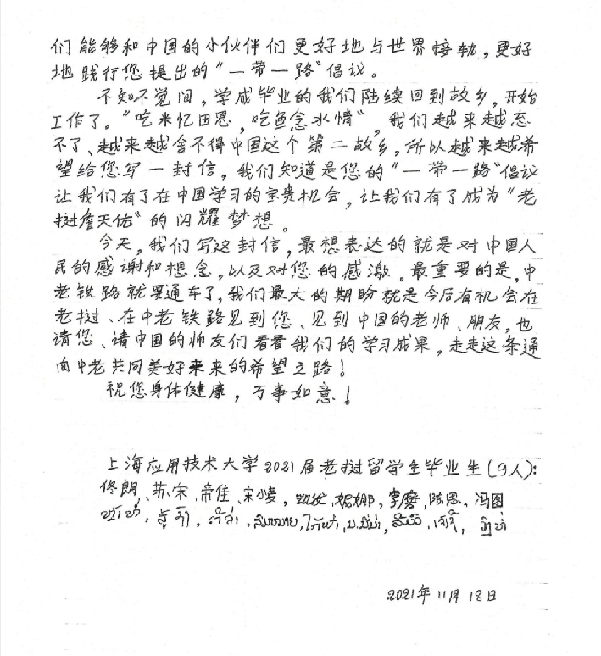 们能够和中国的小伙伴们更好地与世界接轨，更好
地践行您提出的“一带一路”倡议。
不知不觉间，学成毕业的我们陆续回到故乡，开始
工作了。“吃米忆田恩，吃鱼念水情”，我们越来越忘
不了、越来越舍不得中国这个第二故乡，所以越来越希
望给您写一封信。我们知道是您的“一带一路”倡议
让我们有了在中国学习的宝贵机会，让我们有了成为“老
挝詹天佑”的闪耀梦想。
今天，我们写这封信，最想表达的就是对中国人
民的感谢和想念，以及对您的感激。最重要的是，中
老铁路就要通车了，我们最大的期盼就是今后有机会在
老挝、在中老铁路见到您、见到中国的老师、朋友，也
请您、请中国的师友们看看我们的学习成果，走走这条通
向中老共同美好未来的希望之路！
祝您身体健康，万事如意！
上海应用技术大学2021届老挝留学生毕业生（9人）：
佟朗、苏宗、帝佳、宋小曼，妮娜，陈恩，冯图
2021年11月12日